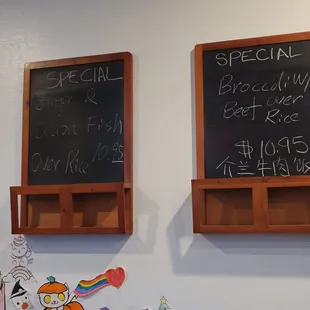 SPECIAL
Ginger &
Onion Fish
Over Rice 10.95
SPECIAL
Broccoli W/
Beef over
Rice
$10.95
介兰牛肉饭